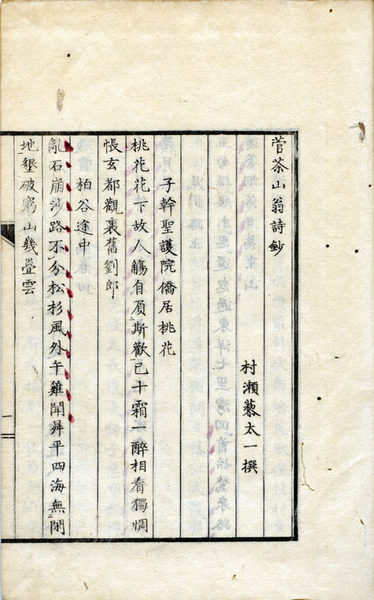 菅茶山翁詩鈔
村瀬藜太一撰
子幹聖護院僑居桃花
桃花花下故人觴自負斯歡已十霜一醉相看獨惆
悵玄都觀裏舊劉郎
柏谷途中
亂石崩沙路不分松杉風外午雞聞昇平四海無閑
地墾破窮山幾疊雲